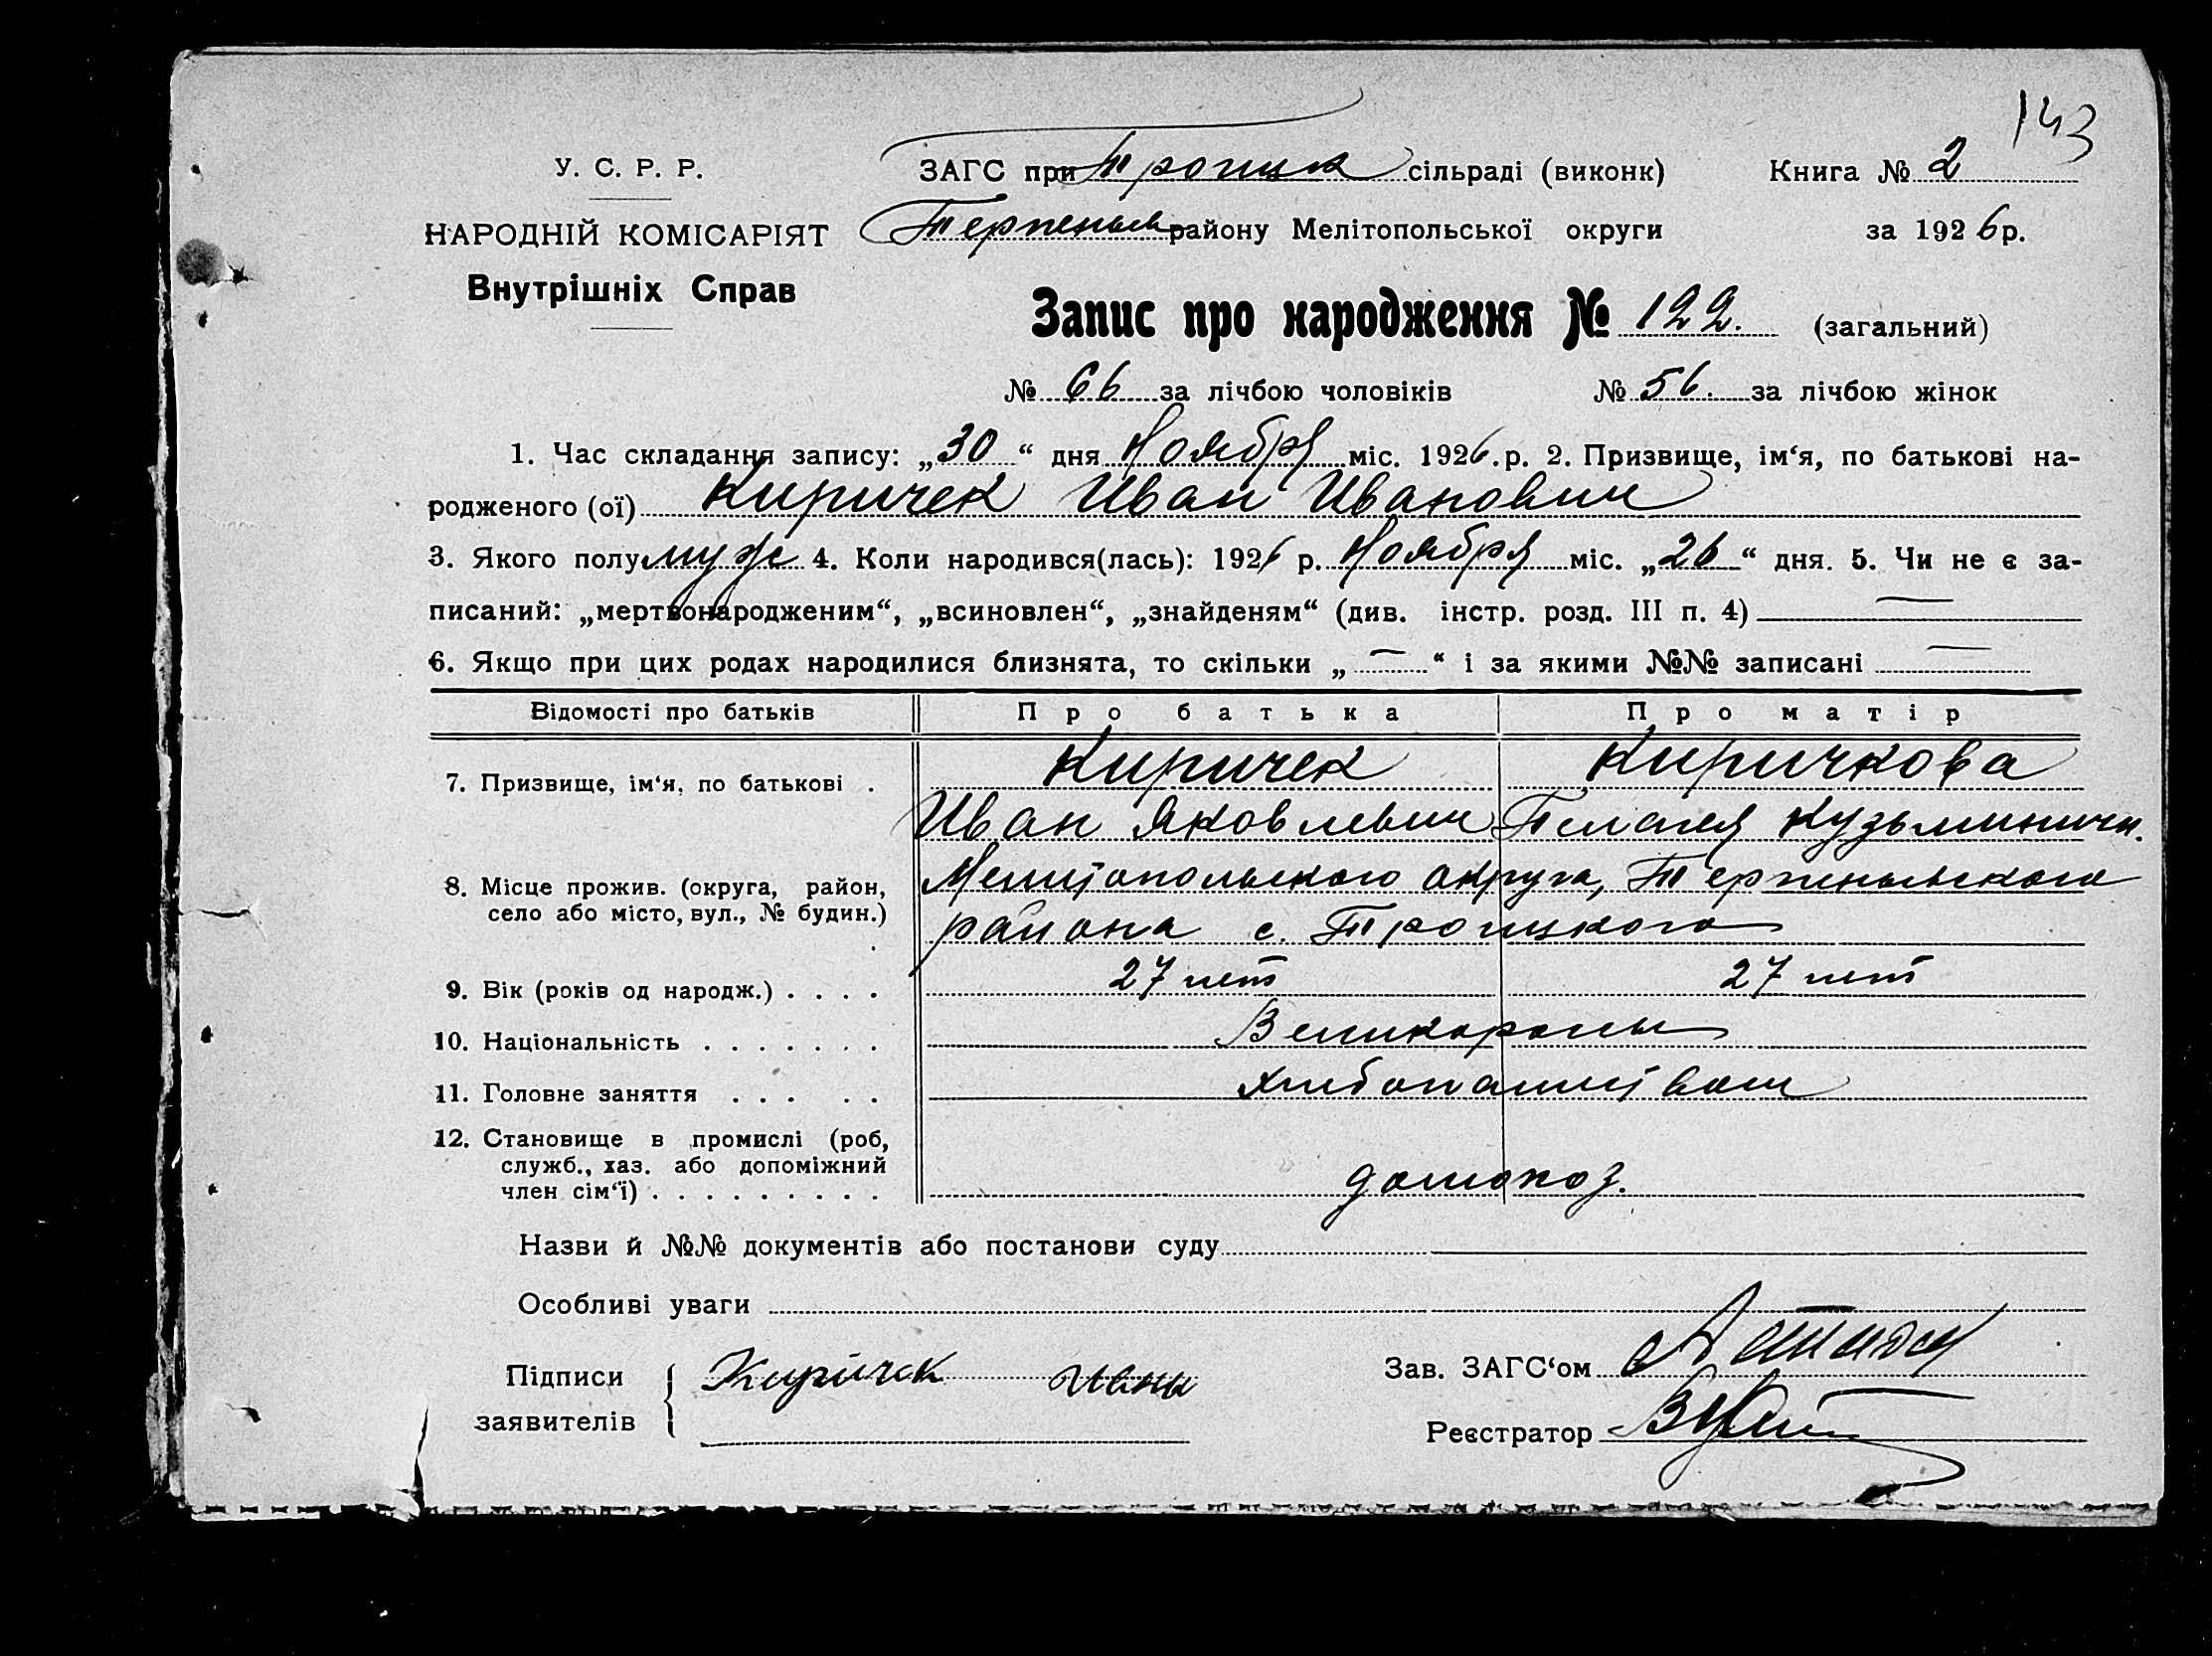 143
У. С. Р. Р.
ЗАГС при Троицк сільраді (виконк) Книга № 2
НАРОДНІЙ КОМІСАРІЯТ Терпеньев району Мелітопольської округи за 1926 р.
Внутрішніх Справ
Запис про народження № 122. (загальний)
№ 66 за лічбою чоловіків № 56. за лічбою жінок
1. Час складання запису: „30“ дня Ноября міс. 1926.р. 2. Призвище, ім‘я, по батькові на-
родженого (ої) Киричек Иван Иванович
3. Якого полу муж 4. Коли народився(лась): 1926 р. Ноября міс. „26“ дня. 5. Чи не є за-
писаний: „мертвонародженим“, „всиновлен“, „знайденям“ (див. інстр. розд. III п. 4) —
6. Якщо при цих родах народилися близнята, то скільки „—“ і за якими №№ записані —
Відомості про батьків Про батька Про матір
7. Призвище, ім‘я, по батькові . Киричек Киричкова
Иван Яковлевич Пелагея Кузьминичн.
8. Місце прожив. (округа, район, Мелитопольского округа, Терпеньевского
село або місто, вул., № будин.) района с. Троицкого
9. Вік (років од народж.) . . . . 27 лет 27 лет
10. Національність . . . . . . . Великоросы
11. Головне заняття . . . . . Хлебопашество
12. Становище в промислі (роб,
служб., хаз. або допоміжний
член сім‘ї) . . . . . . . . . домохоз.
Назви й №№ документів або постанови суду
Особливі уваги
Підписи Киричек Иван Зав. ЗАГС‘ом
заявителів Реєстратор